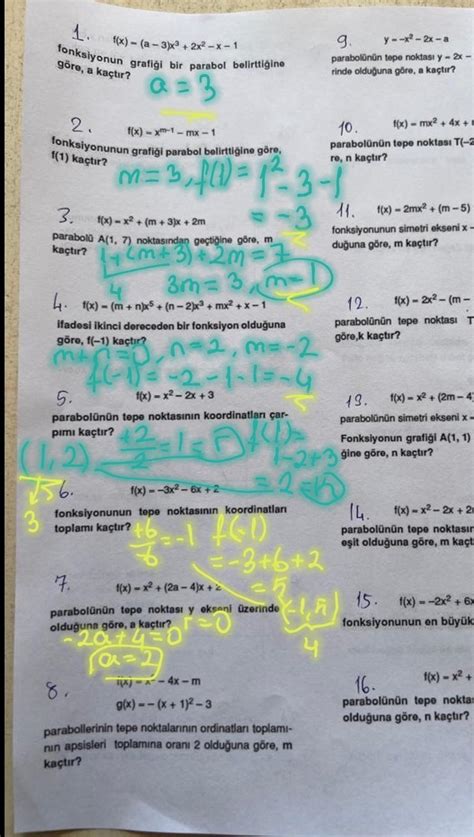 1. f(x) = (a – 3)x³ + 2x² – x – 1
fonksiyonun grafiği bir parabol belirttiğine
göre, a kaçtır?
a = 3
2. f(x) = xᵐ⁻¹ – mx – 1
fonksiyonunun grafiği parabol belirttiğine göre,
f(1) kaçtır?
m = 3, f(1) = 1² - 3 - 1
= -3
3. f(x) = x² + (m + 3)x + 2m
parabolü A(1, 7) noktasından geçtiğine göre, m
kaçtır?
1 + (m+3) + 2m = 7
4 3m = 3, m = 1
4. f(x) = (m + n)x⁵ + (n – 2)x³ + mx² + x – 1
ifadesi ikinci dereceden bir fonksiyon olduğuna
göre, f(–1) kaçtır?
m + n = 0, n = 2, m = -2
f(-1) = -2 - 1 - 1 = -4
5. f(x) = x² – 2x + 3
parabolünün tepe noktasının koordinatları çar-
pımı kaçtır?
+2/2 = 1 = r f(1) =
1 - 2 + 3
(1, 2) = 2 = k
3
6. f(x) = –3x² – 6x + 2
fonksiyonunun tepe noktasının koordinatları
toplamı kaçtır?
+6/-6 = -1 f(-1)
= -3 + 6 + 2
= 5
7. f(x) = x² + (2a – 4)x + 2
parabolünün tepe noktası y ekseni üzerinde
olduğuna göre, a kaçtır?
r = 0
-2a + 4 = 0
4
a = 2
8. f(x) = x² – 4x – m
g(x) = – (x + 1)² – 3
parabollerinin tepe noktalarının ordinatları toplamı-
nın apsisleri toplamına oranı 2 olduğuna göre, m
kaçtır?
9. y = –x² – 2x – a
parabolünün tepe noktası y = 2x –
rinde olduğuna göre, a kaçtır?
10. f(x) = mx² + 4x +
parabolünün tepe noktası T(–2
re, n kaçtır?
11. f(x) = 2mx² + (m – 5)
fonksiyonunun simetri ekseni x –
duğuna göre, m kaçtır?
12. f(x) = 2x² – (m –
parabolünün tepe noktası T
göre,k kaçtır?
13. f(x) = x² + (2m – 4
parabolünün simetri ekseni x
Fonksiyonun grafiği A(1, 1)
ğine göre, n kaçtır?
14. f(x) = x² – 2x + 2
parabolünün tepe noktasın
eşit olduğuna göre, m kaçt
15. f(x) = –2x² + 6x
fonksiyonunun en büyük
16. f(x) = x² +
parabolünün tepe nokta
olduğuna göre, n kaçtır?